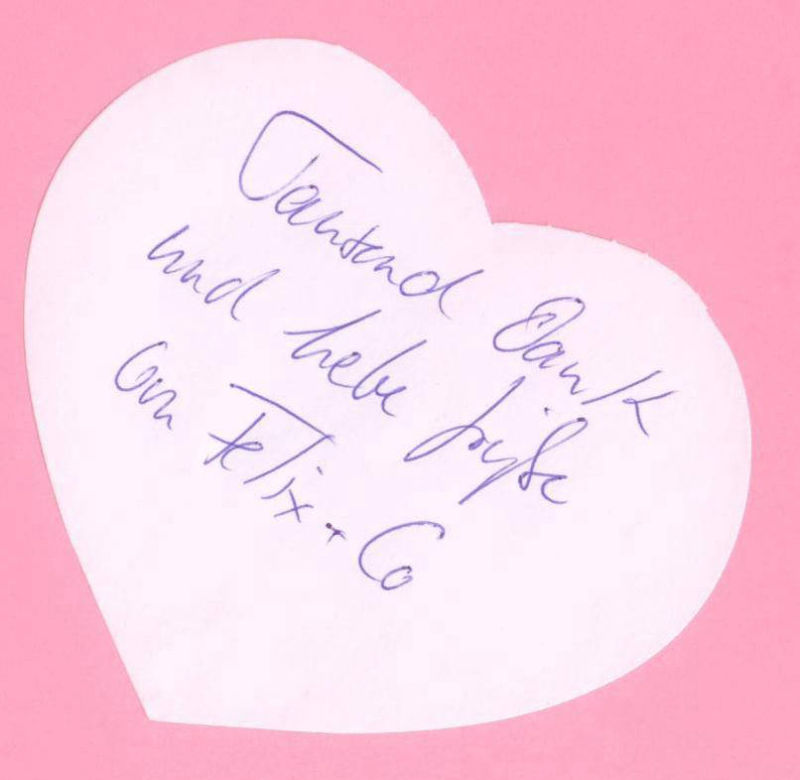 Tausend Dank
und liebe Grüße
von Felix + Co